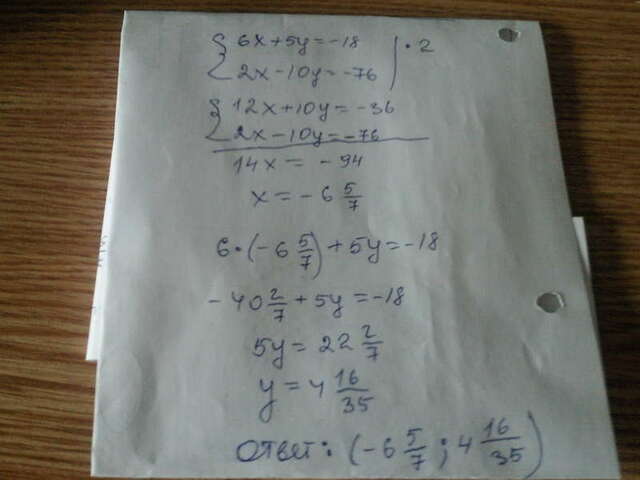 { 6x+5y=-18 | • 2
2x-10y=-76
{ 12x+10y=-36
2x-10y=-76
14x = -94
x = -6 5/7
6•(-6 5/7)+5y=-18
-40 2/7+5y=-18
5y=22 2/7
y=4 16/35
Ответ: (-6 5/7; 4 16/35)